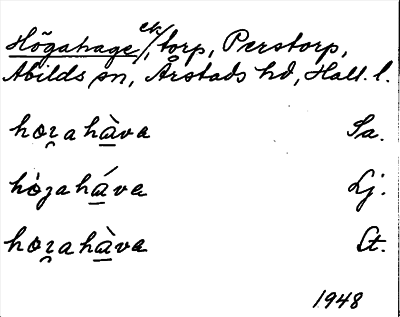 Högahage ek/, torp, Perstorp,
Abilds sn, Årstads hd, Hall. l.
hoꝛahàva Sa.
hòʒaháva Lj.
hoꝛahàva Ct.
1948